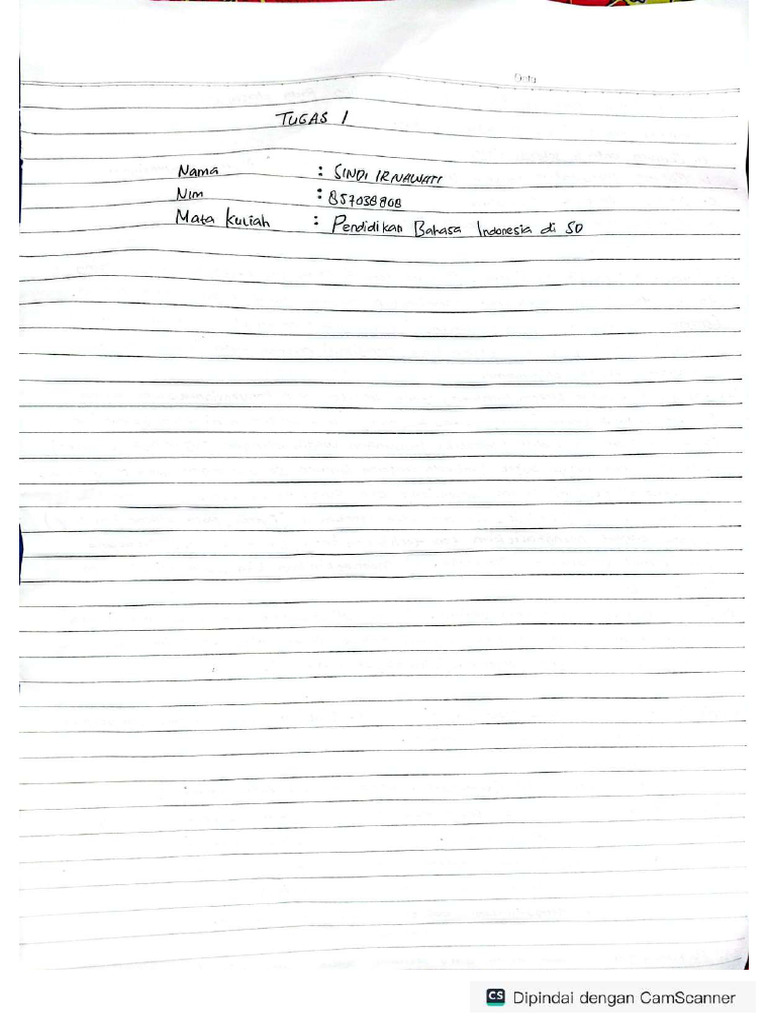 Date
TUGAS 1
Nama : SINDI IRNAWATI
Nim : 857038808
Mata Kuliah : Pendidikan Bahasa Indonesia di SD
CS Dipindai dengan CamScanner